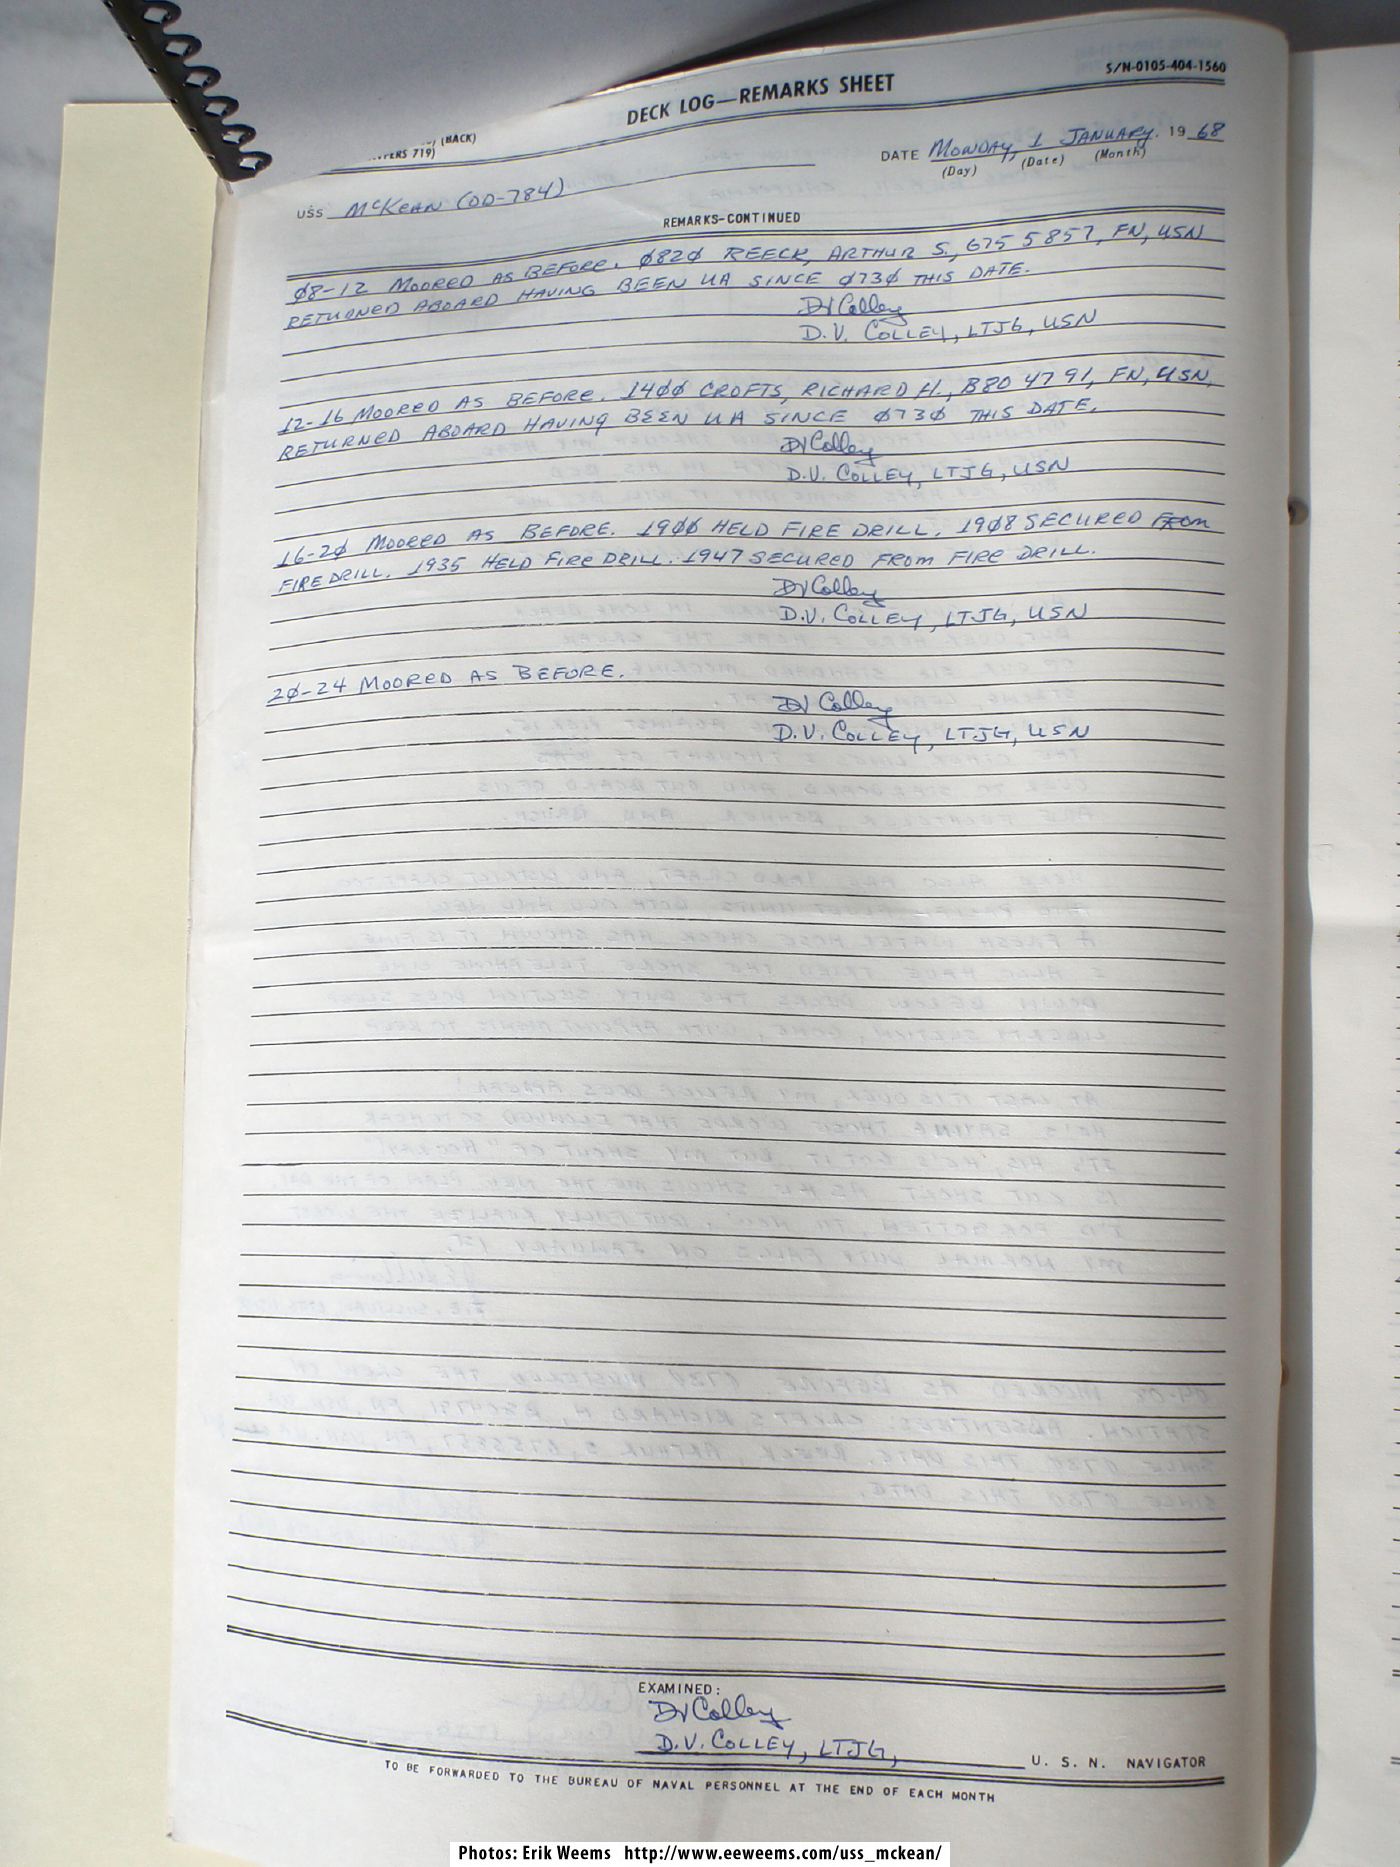 S/N-0105-404-1560
DECK LOG—REMARKS SHEET
(BACK)
PERS 719)
DATE MONDAY, 1 JANUARY. 19 68
(Day) (Date) (Month)
USS McKEAN (DD-784)
REMARKS-CONTINUED
Ø8-12 MOORED AS BEFORE. Ø82Ø REECK, ARTHUR S., 675 5857, FN, USN
RETURNED ABOARD HAVING BEEN UA SINCE Ø73Ø THIS DATE.
DV Colley
D.V. COLLEY, LTJG, USN
12-16 MOORED AS BEFORE. 14ØØ CROFTS, RICHARD H., B80 47 91, FN, USN,
RETURNED ABOARD HAVING BEEN UA SINCE Ø73Ø THIS DATE.
DV Colley
D.V. COLLEY, LTJG, USN
16-2Ø MOORED AS BEFORE. 19ØØ HELD FIRE DRILL. 19Ø8 SECURED FROM
FIRE DRILL. 1935 HELD FIRE DRILL. 1947 SECURED FROM FIRE DRILL.
DV Colley
D.V. COLLEY, LTJG, USN
2Ø-24 MOORED AS BEFORE.
DV Colley
D.V. COLLEY, LTJG, USN
EXAMINED:
DV Colley
D.V. COLLEY, LTJG, U. S. N. NAVIGATOR
TO BE FORWARDED TO THE BUREAU OF NAVAL PERSONNEL AT THE END OF EACH MONTH
Photos: Erik Weems http://www.eeweems.com/uss_mckean/